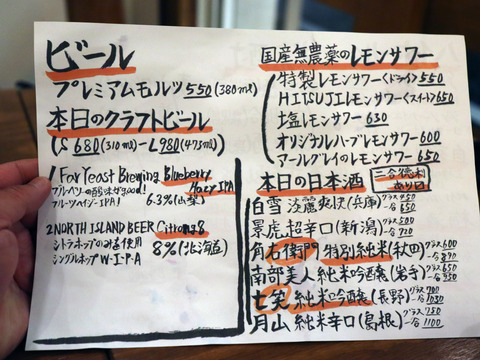 ビール
プレミアムモルツ 550 (380ml)
本日のクラフトビール
(S 680 (310ml) ー L 980 (473ml))
1 Far Yeast Brewing Blueberry
Hazy IPA
ブルーベリーの酸味が
フルーツヘイジーIPA! 6.3% (山梨)
2 NORTH ISLAND BEER Citrong 8
シトラホップのみを使用
シングルホップW-IPA 8% (北海道)
国産無農薬のレモンサワー
特製レモンサワー<ドライ> 550
HITSUJIレモンサワー<スイート> 650
塩レモンサワー 630
オリジナルハーブレモンサワー 600
アールグレイのレモンサワー 650
本日の日本酒 二合徳利あり〼
白雪 淡麗爽快 (兵庫) グラス 450 一合 650
景虎 超辛口 (新潟) グラス 500 一合 720
角右衛門 特別純米 (秋田) グラス 600 一合 870
南部美人 純米吟醸 (岩手) グラス 650 一合 950
七笑 純米吟醸 (長野) グラス 700 一合 1030
月山 純米辛口 (島根) グラス 750 一合 1100